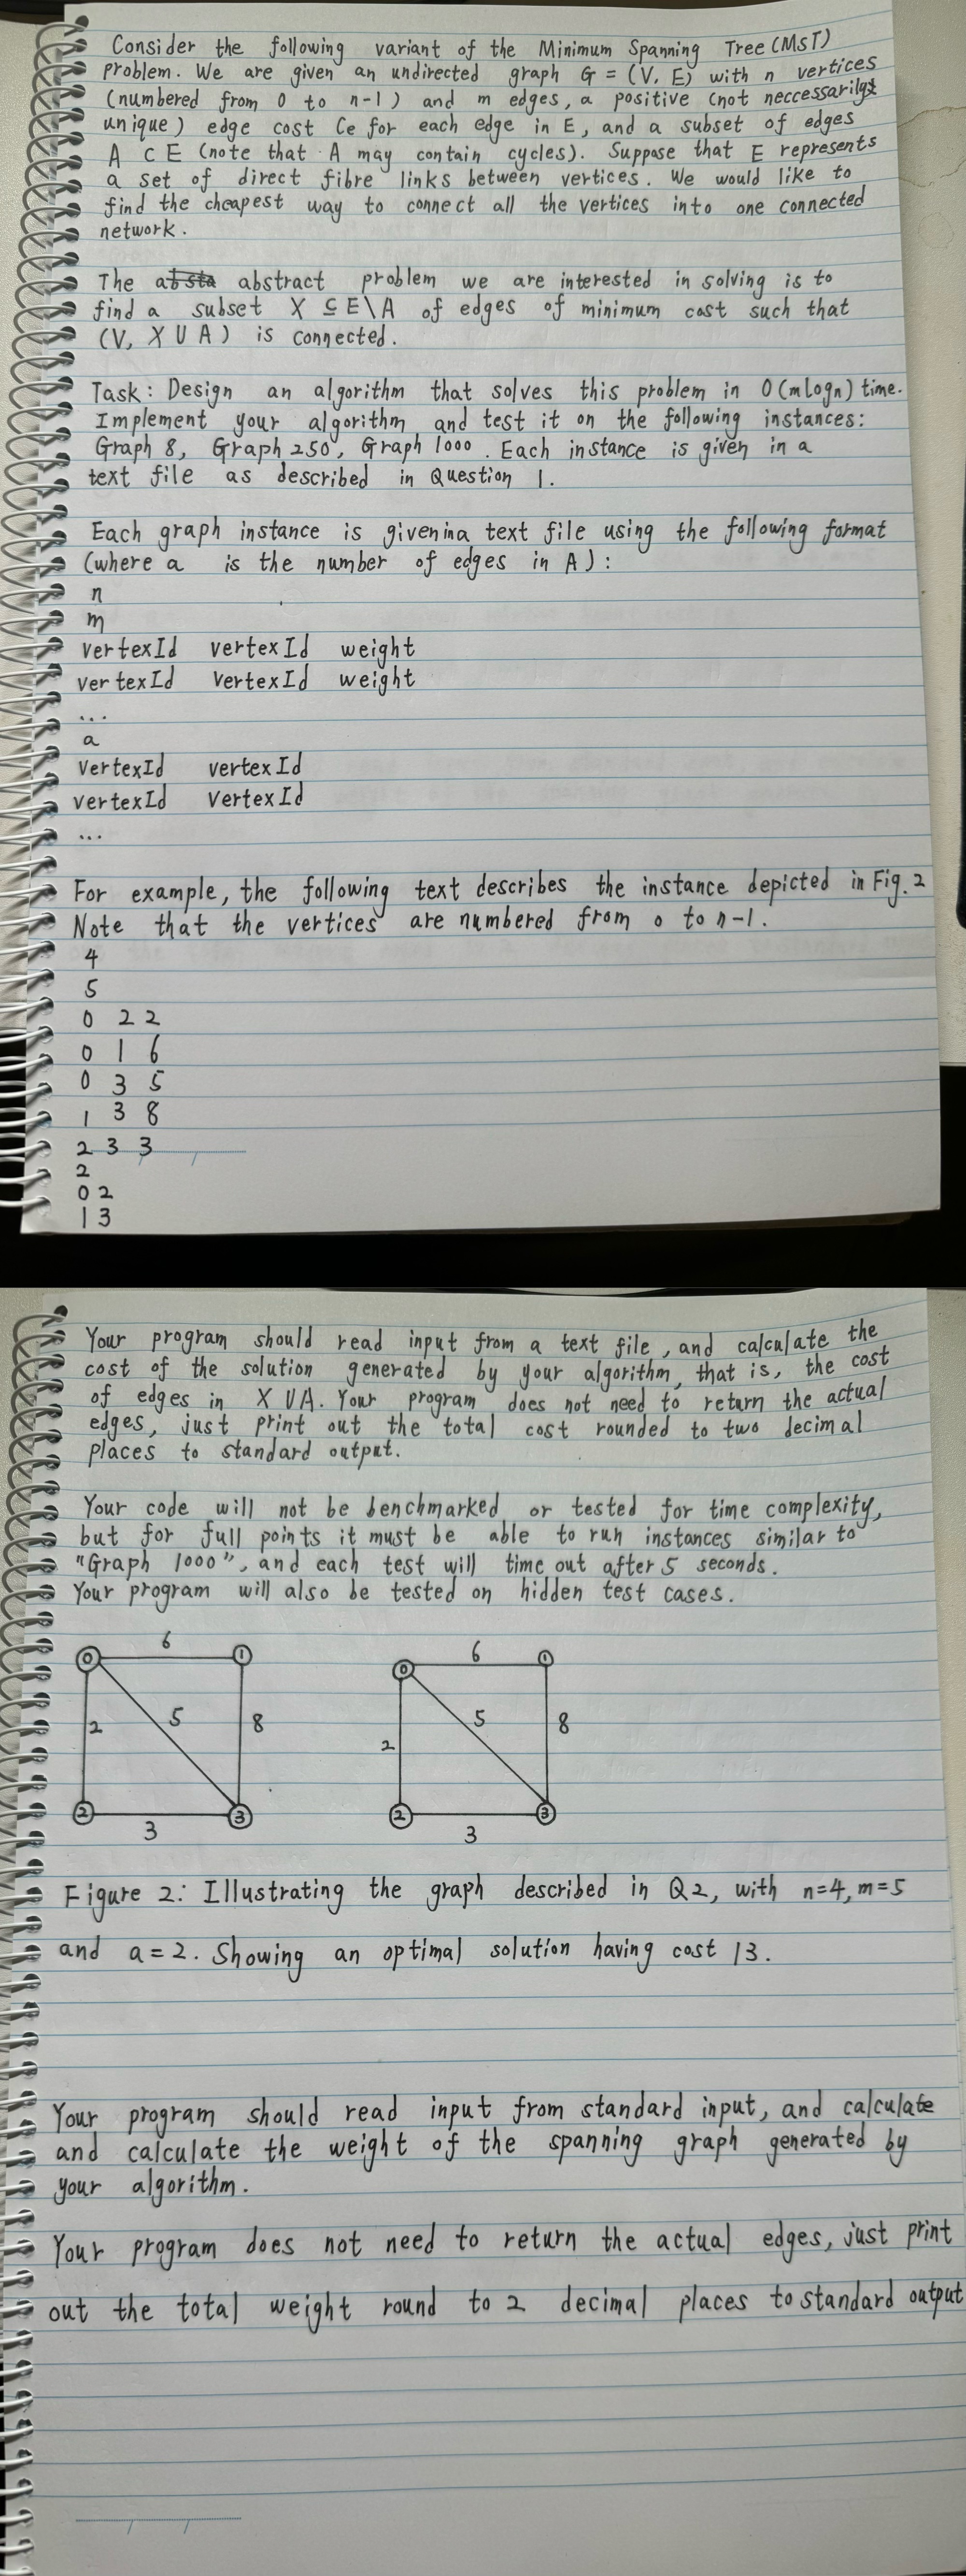 Consider the following variant of the Minimum Spanning Tree (MST)
problem. We are given an undirected graph G = (V, E) with n vertices
(numbered from 0 to n-1) and m edges, a positive (not neccessarily
unique) edge cost Ce for each edge in E, and a subset of edges
A ⊂ E (note that A may contain cycles). Suppose that E represents
a set of direct fibre links between vertices. We would like to
find the cheapest way to connect all the vertices into one connected
network.
The abstract problem we are interested in solving is to
find a subset X ⊆ E\A of edges of minimum cost such that
(V, X ∪ A) is connected.
Task: Design an algorithm that solves this problem in O(mlogn) time.
Implement your algorithm and test it on the following instances:
Graph 8, Graph 250, Graph 1000. Each instance is given in a
text file as described in Question 1.
Each graph instance is givenina text file using the following format
(where a is the number of edges in A):
n
m
vertexId vertexId weight
vertexId vertexId weight
...
a
vertexId vertexId
vertexId vertexId
...
For example, the following text describes the instance depicted in Fig. 2
Note that the vertices are numbered from 0 to n-1.
4
5
0 2 2
0 1 6
0 3 5
1 3 8
2 3 3
2
0 2
1 3
Your program should read input from a text file, and calculate the
cost of the solution generated by your algorithm, that is, the cost
of edges in X ∪ A. Your program does not need to return the actual
edges, just print out the total cost rounded to two decimal
places to standard output.
Your code will not be benchmarked or tested for time complexity,
but for full points it must be able to run instances similar to
"Graph 1000", and each test will time out after 5 seconds.
Your program will also be tested on hidden test cases.
6 6
0 1 0 1
2 5 8 2 5 8
2 3 2 3
3 3
Figure 2: Illustrating the graph described in Q2, with n=4, m=5
and a=2. Showing an optimal solution having cost 13.
Your program should read input from standard input, and calculate
and calculate the weight of the spanning graph generated by
your algorithm.
Your program does not need to return the actual edges, just print
out the total weight round to 2 decimal places to standard output